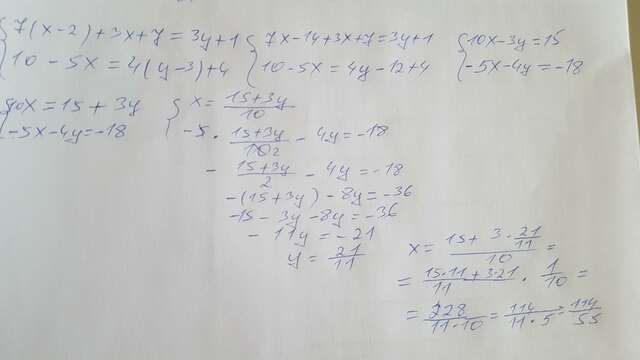 { 7(x-2)+3x+7=3y+1 { 7x-14+3x+7=3y+1 { 10x-3y=15
10-5x=4(y-3)+4 10-5x=4y-12+4 -5x-4y=-18
{ 10x=15+3y { x=\frac{15+3y}{10}
-5x-4y=-18 -5·\frac{15+3y}{10 2}-4y=-18
-\frac{15+3y}{2}-4y=-18
-(15+3y)-8y=-36
-15-3y-8y=-36
-11y=-21
y=\frac{21}{11}
x=\frac{15+3·\frac{21}{11}}{10}=
=\frac{15·11+3·21}{11}·\frac{1}{10}=
=\frac{228}{11·10}=\frac{114}{11·5}=\frac{114}{55}